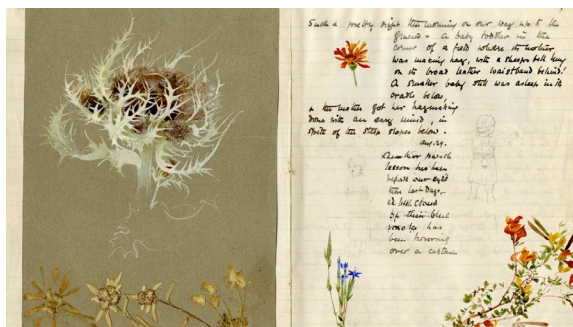 Such a pretty sight this morning on our way up to the
Glacier - A baby toddler in the
corner of a field where its mother
was making hay, with a sheep's bell hung
on its broad leather waistband behind.
A smaller baby still was asleep in its
cradle below
& the mother got her haymaking
done with an easy mind, in
spite of the steep slopes below.
Aug. 29.
Another
lesson has been
before our eyes
these last days.
A little cloud
of their blue
has
been hovering
over a certain